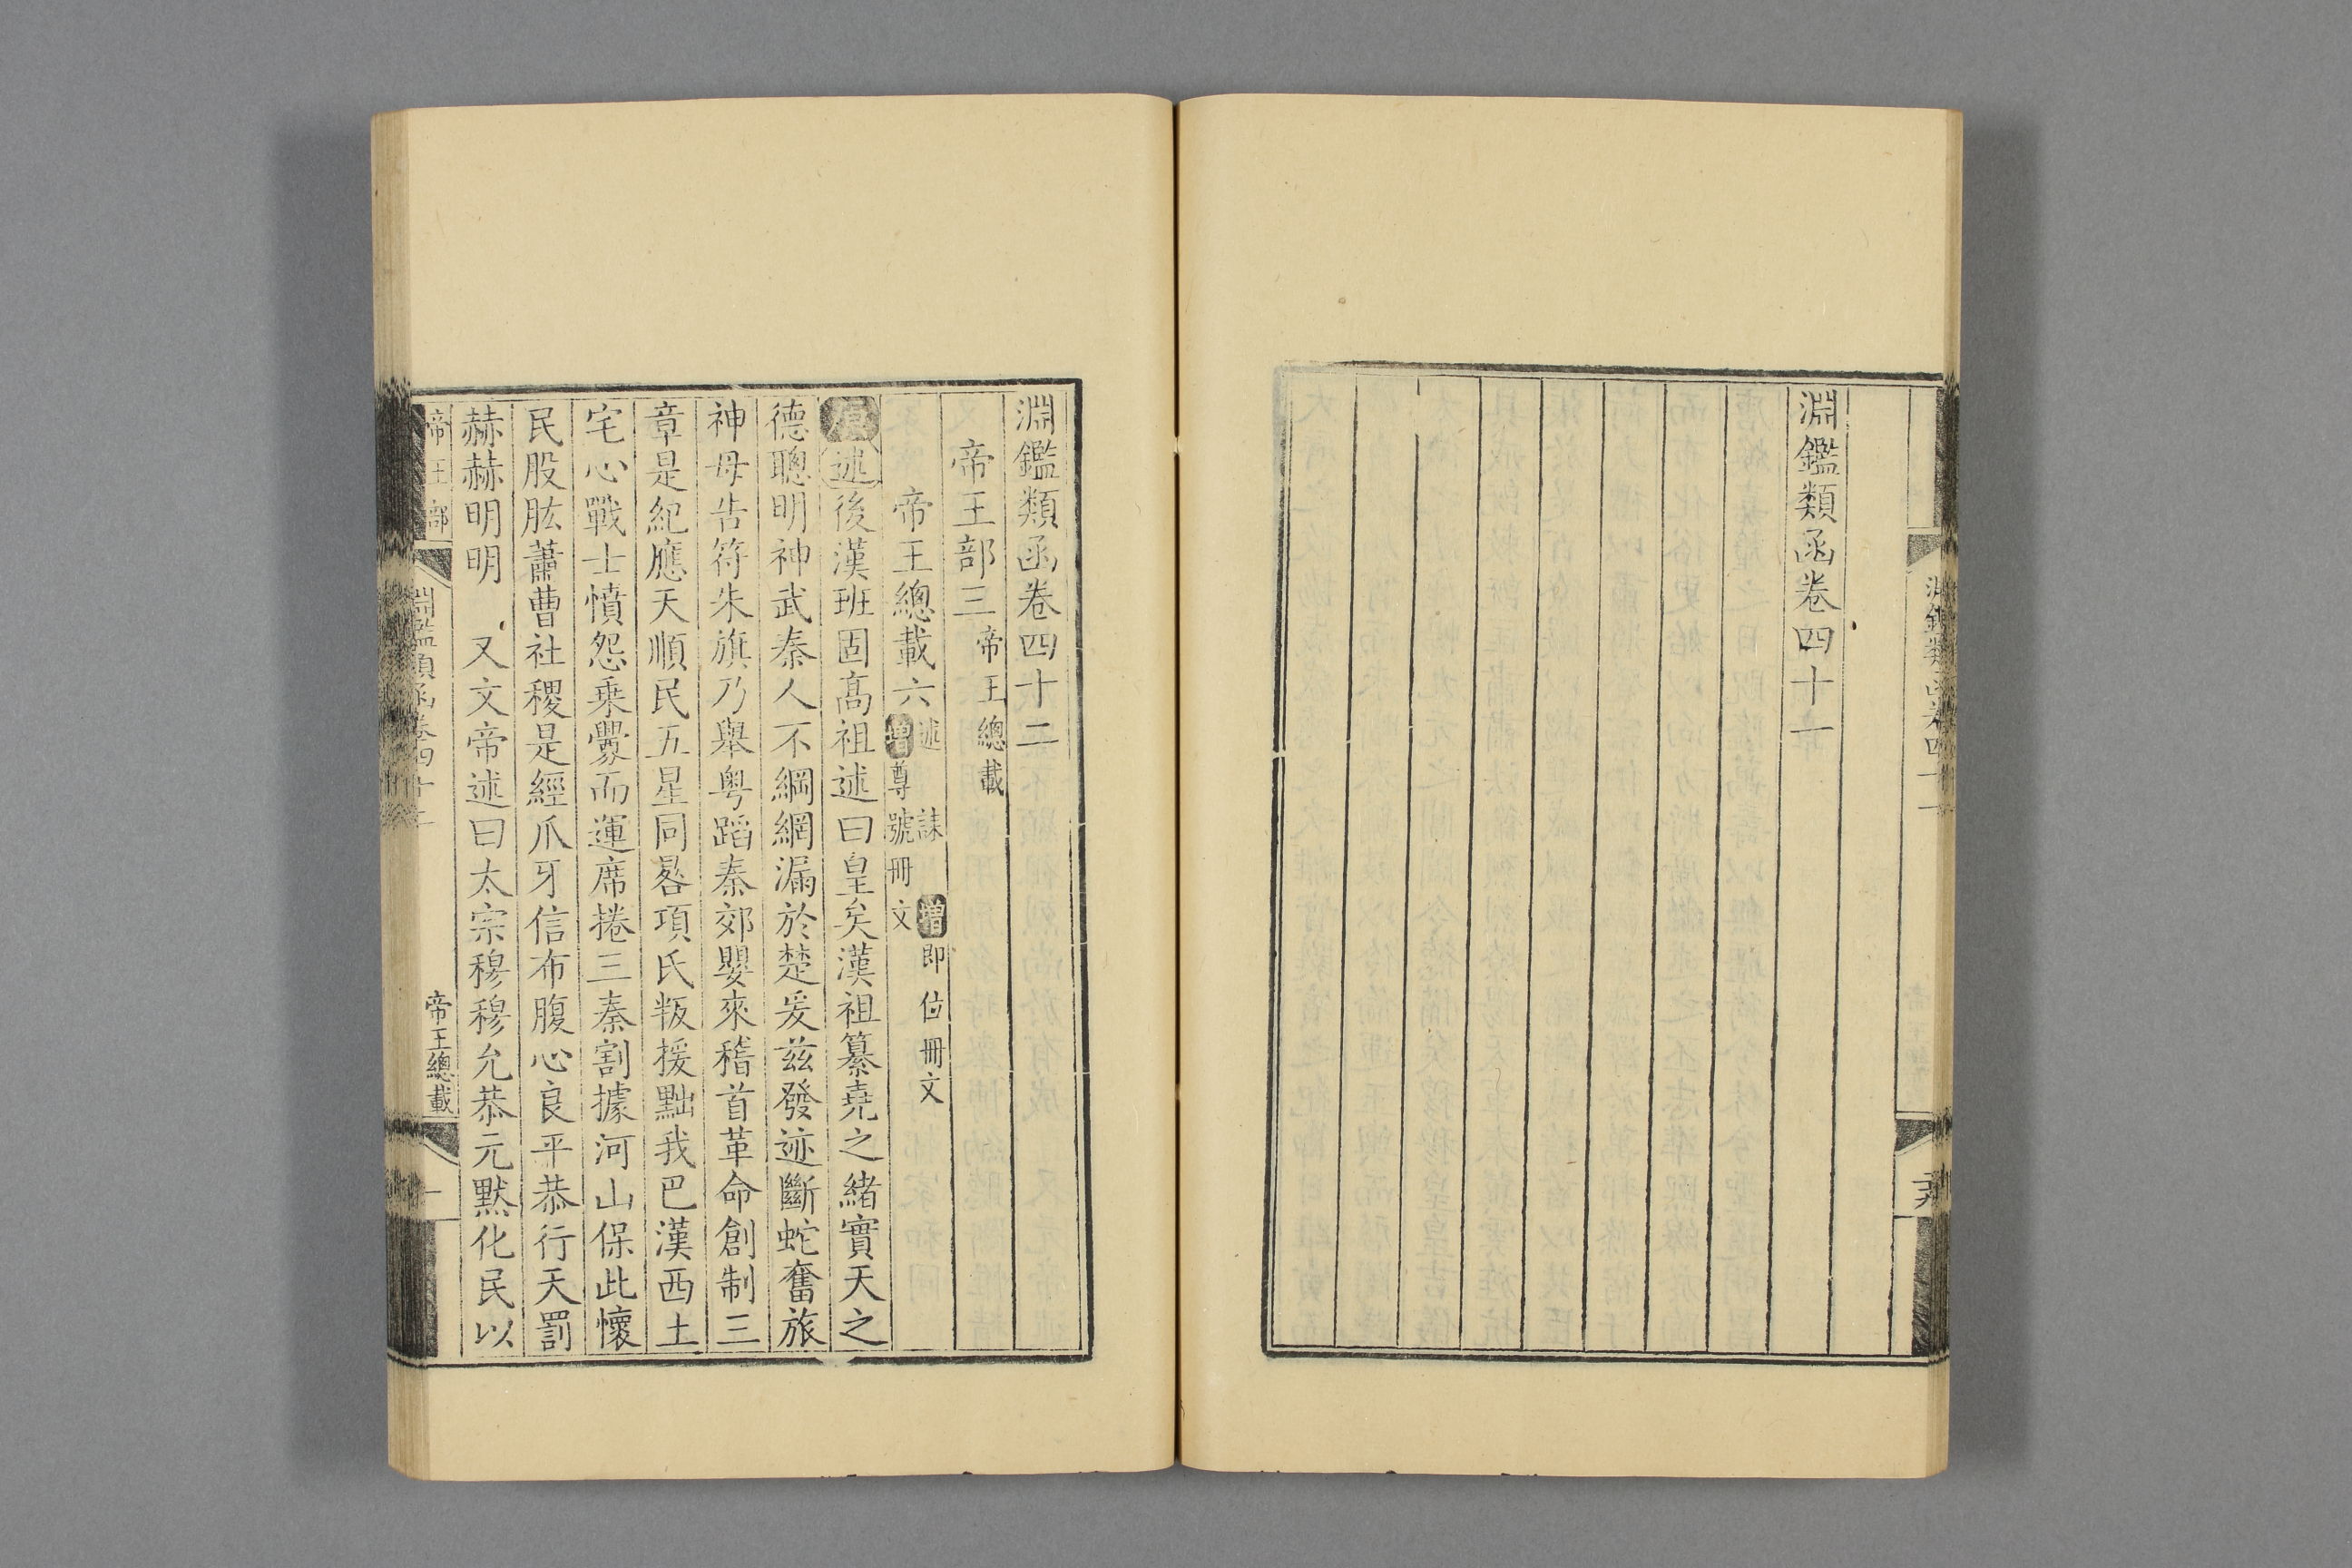 淵鑑類函卷四十一
淵鑑類函卷四十二
帝王部三帝王總載
帝王總載六述 誄 增即位冊文
增尊號冊文
原述後漢班固高祖述曰皇矣漢祖纂堯之緒實天之
德聰明神武秦人不綱網漏於楚爰茲發迹斷蛇奮旅
神母告符朱旗乃舉粤蹈秦郊嬰來稽首革命創制三
章是紀應天順民五星同晷項氏叛援黜我巴漢西土
宅心戰士憤怨乘釁而運席捲三秦割據河山保此懷
民股肱蕭曹社稷是經爪牙信布腹心良平恭行天罰
赫赫明明 又文帝述曰太宗穆穆允恭元默化民以
帝王部 淵鑑類函卷四十二 帝王總載 一